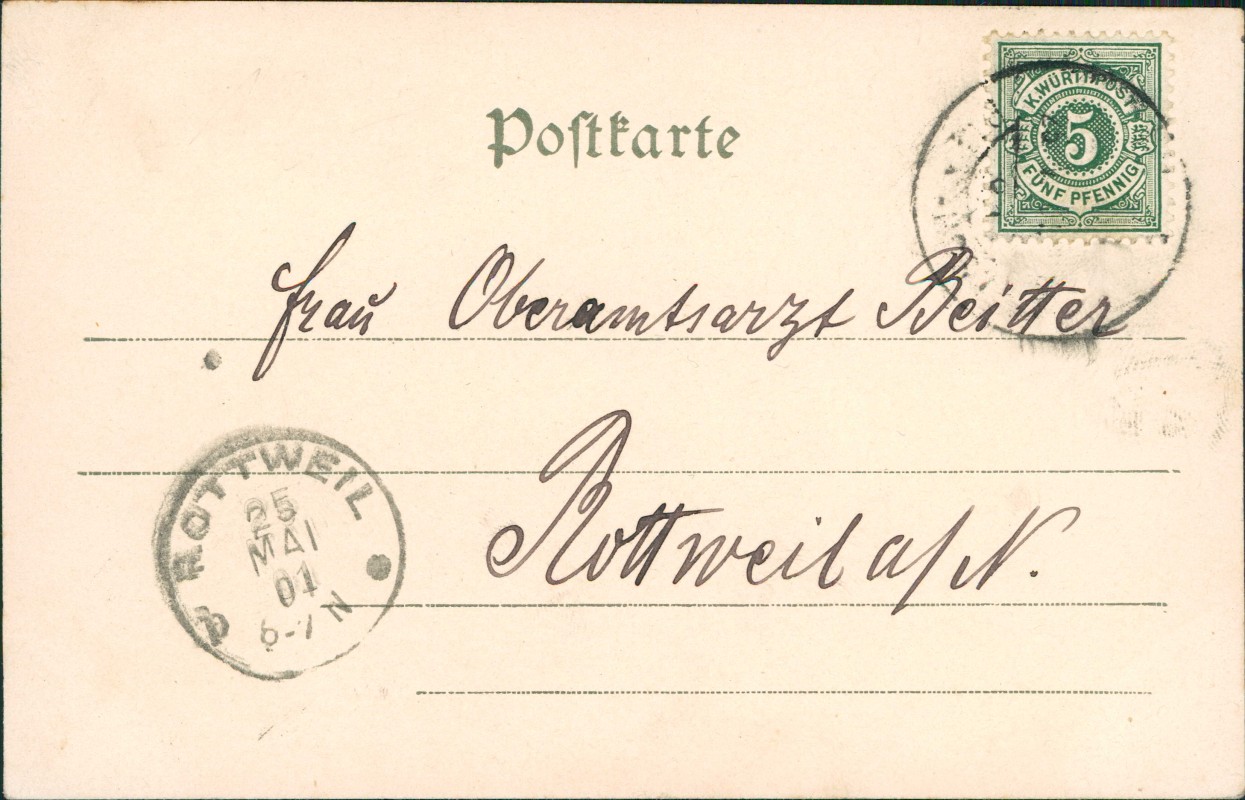 Postkarte
K. WÜRTT. POST
5
FÜNF PFENNIG
Frau Oberamtsarzt Beitter
Rottweil a/N.
ROTTWEIL
25
MAI
01
6-7 N